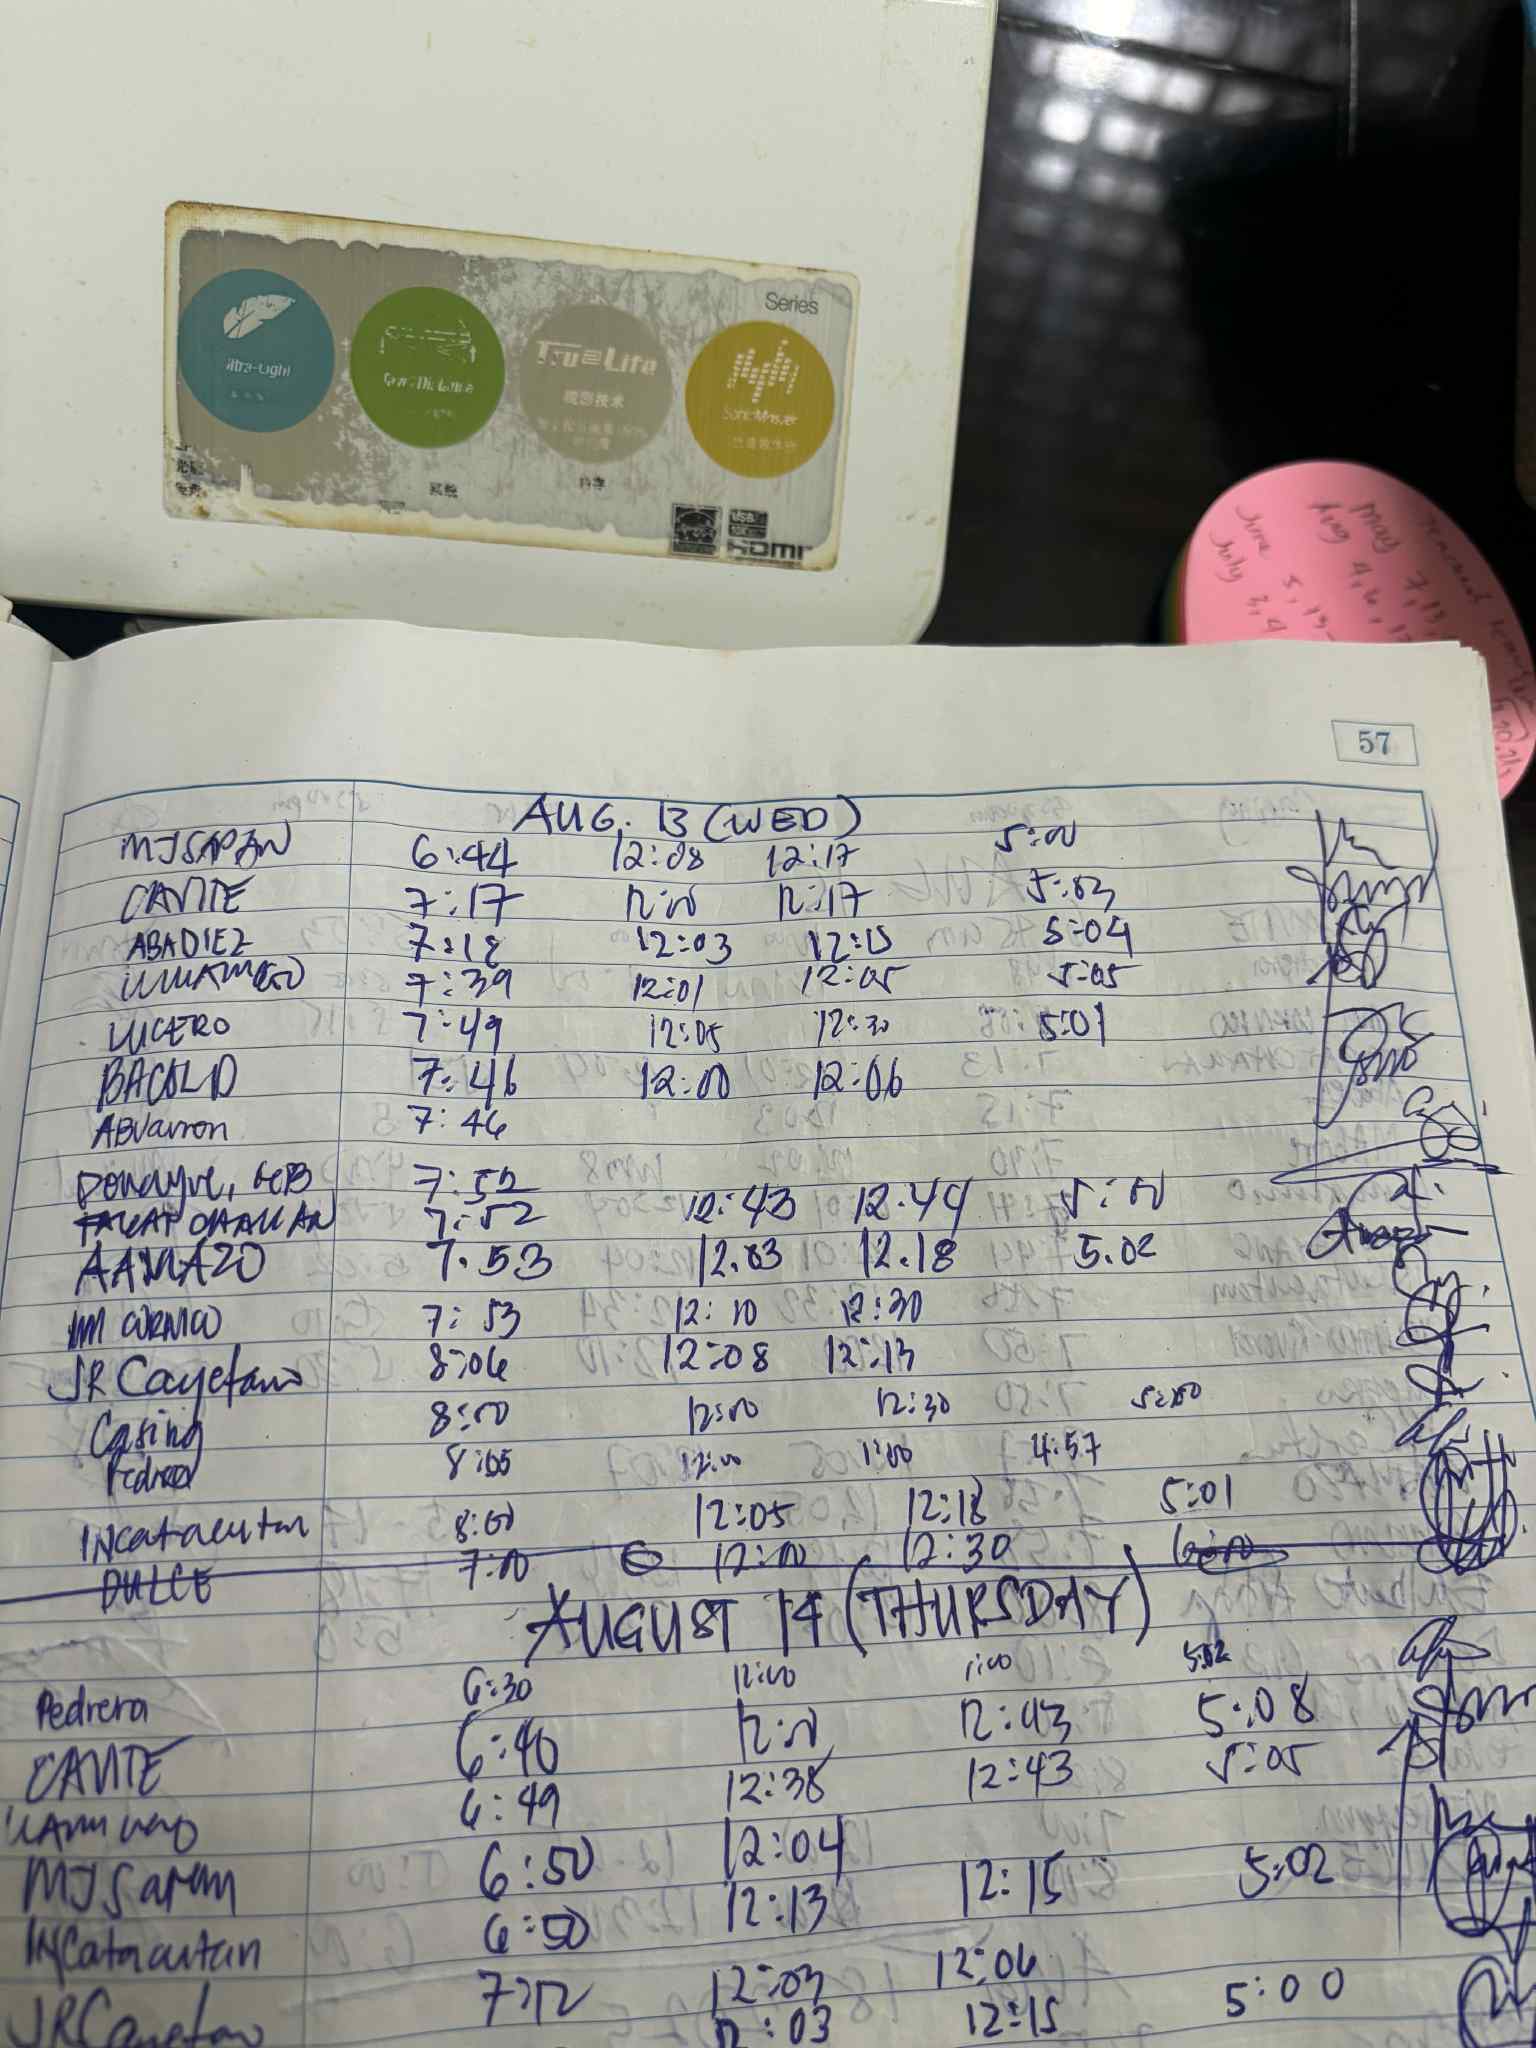 Series
Ultra-Light
Tru≡Life
SonicMaster
USB
HDMI
May 7, 13
Aug 4, 6, 12
June 5, 13
July 3, 4
57
AUG. 13 (WED)
MJSAPAN 6:44 12:08 12:17 5:00
CANTE 7:17 12:00 12:17 5:03
ABADIEZ 7:18 12:03 12:15 5:04
7:39 12:01 12:05 5:05
LUCERO 7:49 12:05 12:30 5:01
BACOLD 7:46 12:00 12:06
ABVarron 7:46
Donayre, GCB 7:52
7:52 12:43 12:44 5:00
AAMAZO 7.53 12.03 12.18 5.02
7:53 12:10 12:30
JR Cayetano 8:06 12:08 12:13
Casing 8:00 12:00 12:30 5:00
Pedrera 8:05 12:00 1:00 4:57
INCatacutan 8:00 12:05 12:18 5:01
DULCE 7:00 12:00 12:30 6:00
AUGUST 14 (THURSDAY)
Pedrera 6:30 12:00 1:00 5:02
CANTE 6:40 12:00 12:43 5:08
6:49 12:38 12:43 5:05
MJSapan 6:50 12:04
INCatacutan 6:50 12:13 12:15 5:02
JRCayetano 7:12 12:03 12:06
12:03 12:15 5:00